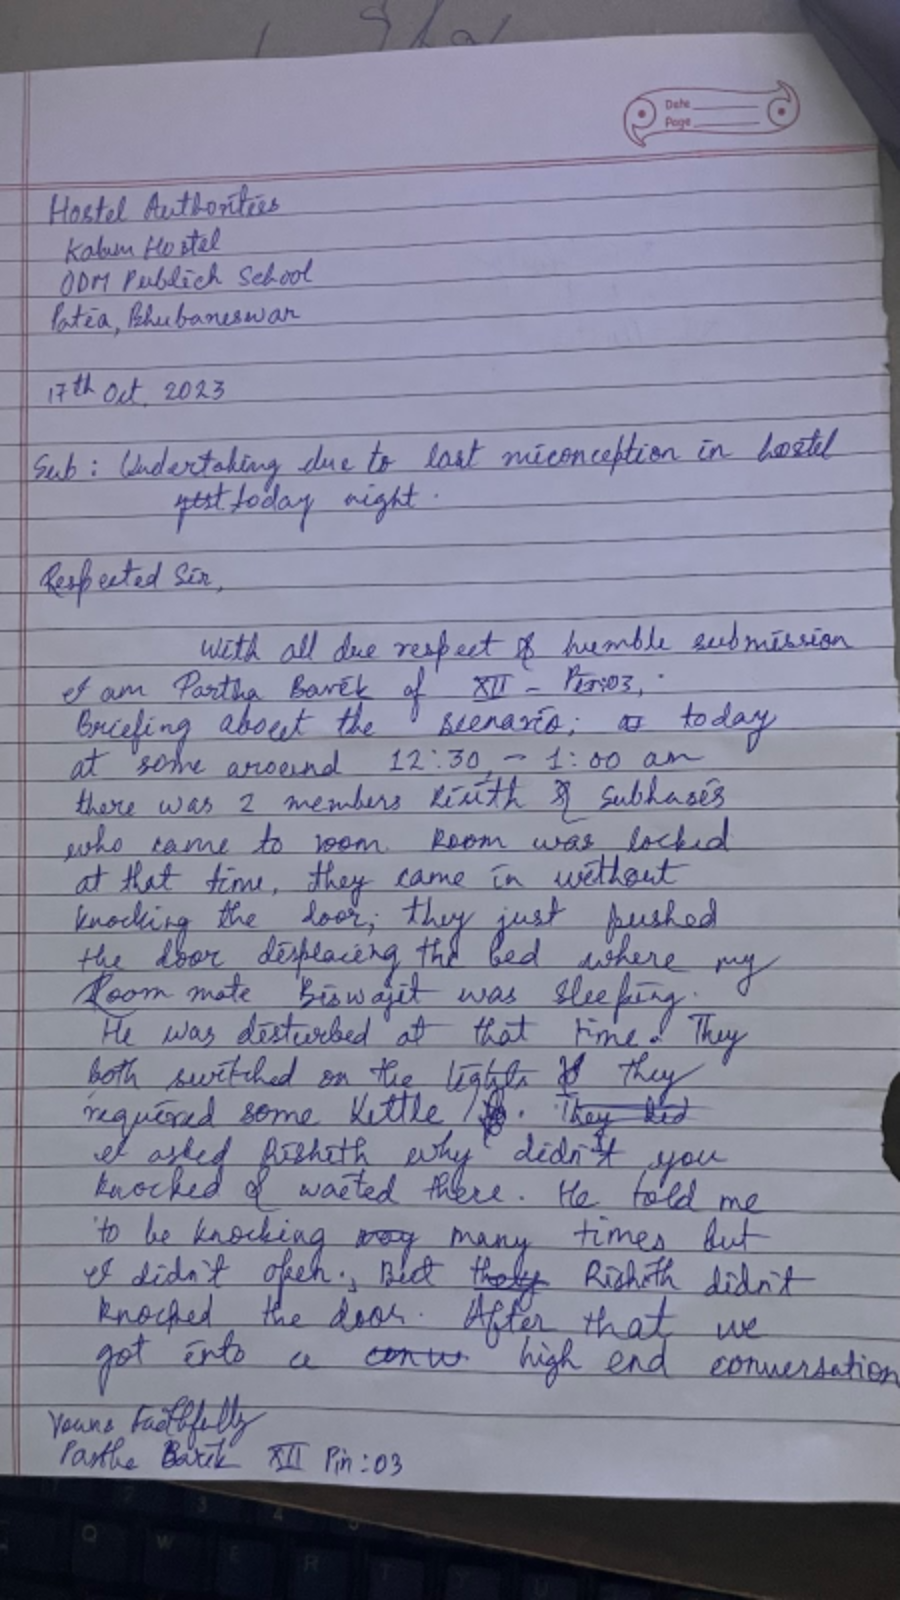 Date
Page
Hostel Authorities
Kalam Hostel
ODM Publich School
Patia, Bhubaneswar
17th Oct, 2023
Sub: Undertaking due to last miconception in hostel
today night.
Respected Sir,
With all due respect & humble submission
I am Partha Barik of XII - Pin:03,
Briefing about the scenario; today
at some around 12:30 - 1:00 am
there was 2 members & Subhasis
who came to room. Room was locked
at that time, they came in without
knocking the door; they just pushed
the door displacing the bed where my
Room mate Biswajit was sleeping.
He was disturbed at that time. They
both switched on the lights & they
required some Kettle.
I asked Rishith why didn't you
knocked & waited there. He told me
to be knocking many times but
I didn't open., But Rishith didn't
knocked the door. After that we
got into a high end conversation
Yours Faithfully
Partha Barik XII Pin:03